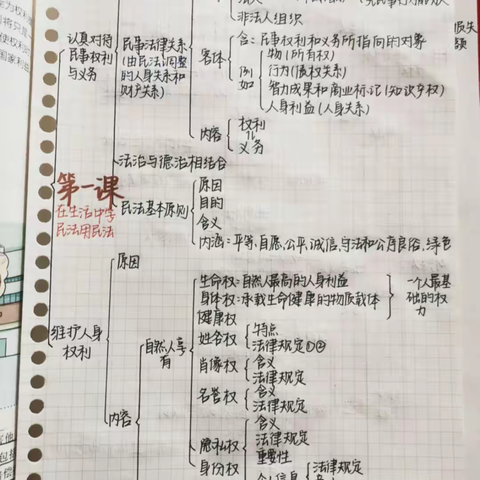 非法人组织
认真对待
民事权利
与义务
民事法律关系
(由民法调整
的人身关系和
财产关系)
客体
含:民事权利和义务所指向的对象
例
如
物(所有权)
行为(债权关系)
智力成果和商业标记(知识产权)
人身利益(人身关系)
内容
权利
义务
法治与德治相结合
第一课
在生活中学
民法用民法
民法基本原则
原因
目的
含义
内涵:平等,自愿,公平,诚信,守法和公序良俗,绿色
维护人身
权利
原因
内容
自然人享
有
生命权:自然人最高的人身利益
身体权:承载生命健康的物质载体
健康权
一个人最基
础的权
力
姓名权
特点
法律规定①②
肖像权
含义
法律规定
名誉权
含义
法律规定
隐私权
含义
法律规定
重要性
身份权
个人信息
法律规定